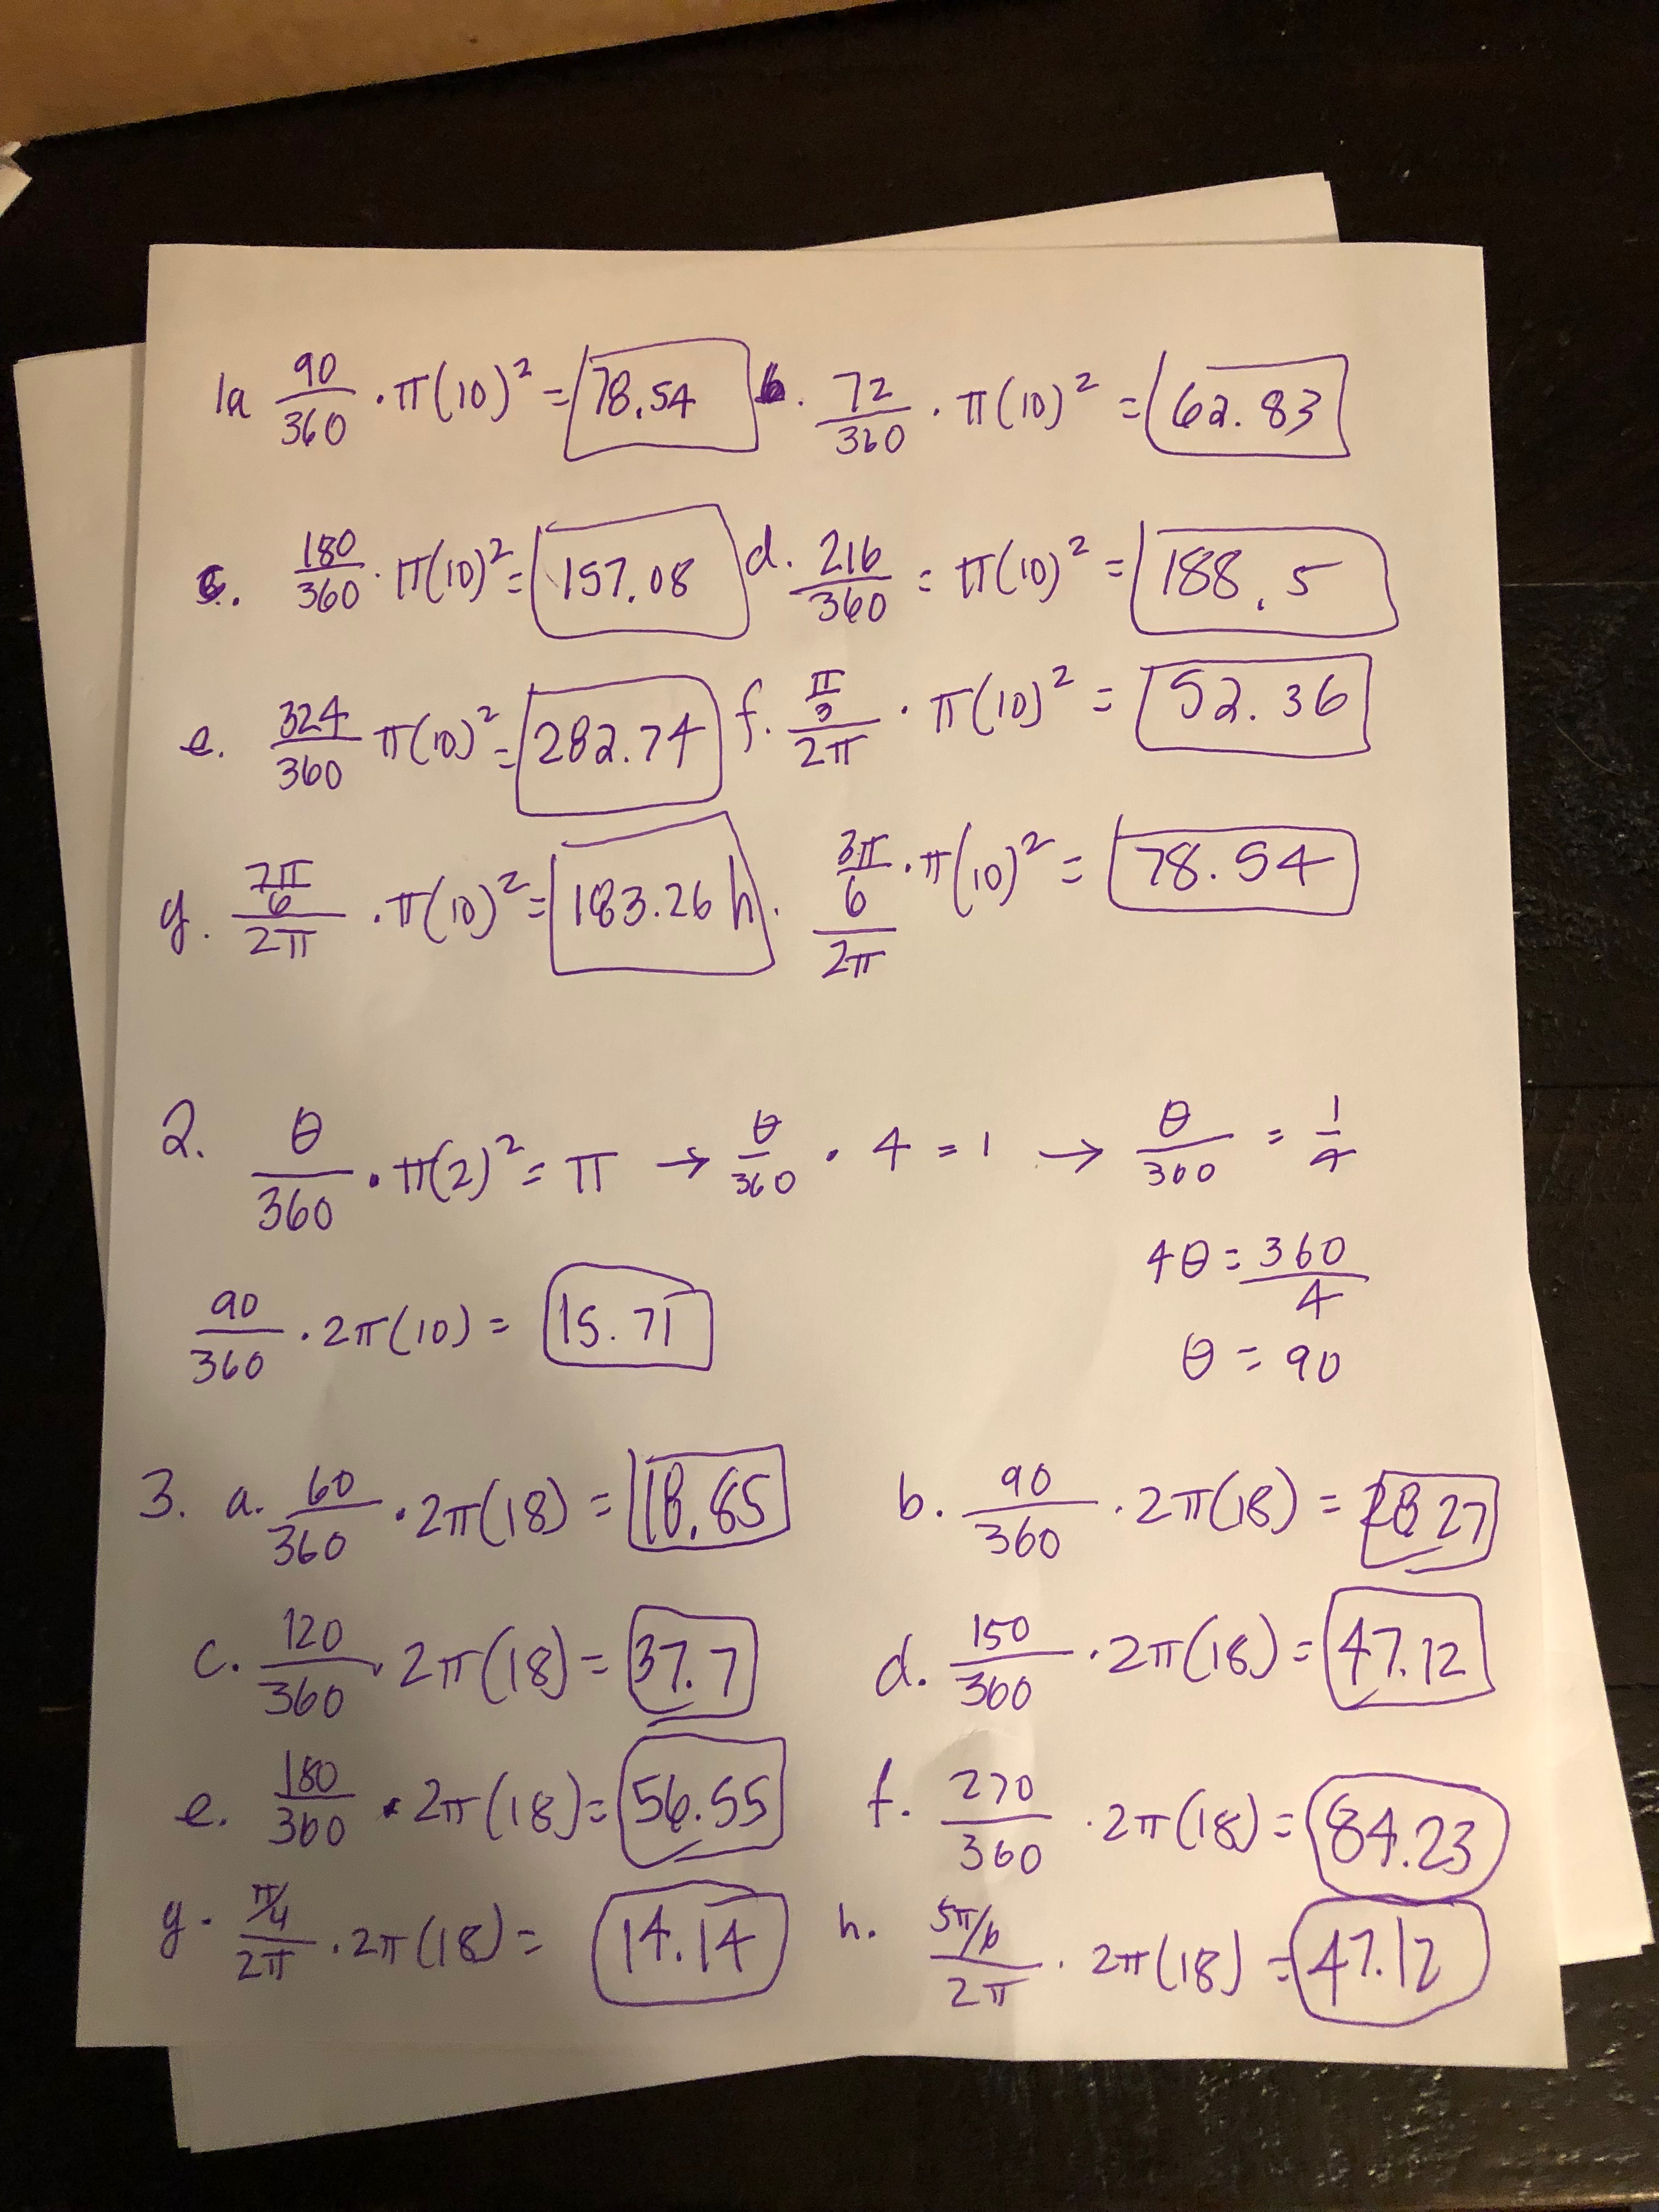 1a 90/360 · π(10)² = 78.54 b. 72/360 · π(10)² = 62.83
c. 180/360 · π(10)² = 157.08 d. 216/360 = π(10)² = 188.5
e. 324/360 π(10)² = 282.74 f. π/3/2π · π(10)² = 52.36
g. 7π/6/2π · π(10)² = 183.26 h. 3π/6/2π · π(10)² = 78.54
2. θ/360 · π(2)² = π → θ/360 · 4 = 1 → θ/360 = 1/4
4θ = 360/4
90/360 · 2π(10) = 15.71
θ = 90
3. a. 60/360 · 2π(18) = 18.85 b. 90/360 · 2π(18) = 28.27
c. 120/360 · 2π(18) = 37.7 d. 150/360 · 2π(18) = 47.12
e. 180/360 · 2π(18) = 56.55 f. 270/360 · 2π(18) = 84.23
g. π/4/2π · 2π(18) = 14.14 h. 5π/6/2π · 2π(18) = 47.12